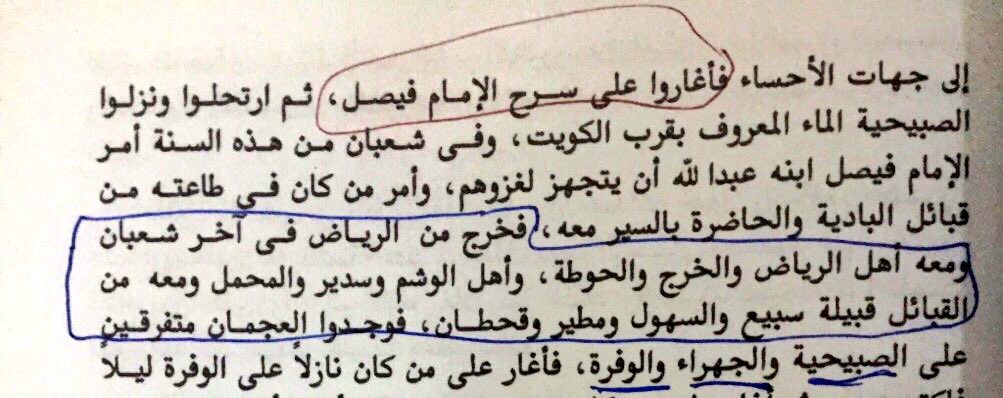 إلى جهات الأحساء فأغاروا على سرح الإمام فيصل، ثم ارتحلوا ونزلوا
الصبيحية الماء المعروف بقرب الكويت، وفى شعبان من هذه السنة أمر
الإمام فيصل ابنه عبدالله أن يتجهز لغزوهم، وأمر من كان فى طاعته من
قبائل البادية والحاضرة بالسير معه، فخرج من الرياض فى آخر شعبان
ومعه أهل الرياض والخرج والحوطة، وأهل الوشم وسدير والمحمل ومعه من
القبائل قبيلة سبيع والسهول ومطير وقحطان، فوجدوا العجمان متفرقين
على الصبيحية والجهراء والوفرة، فأغار على من كان نازلاً على الوفرة ليلاً